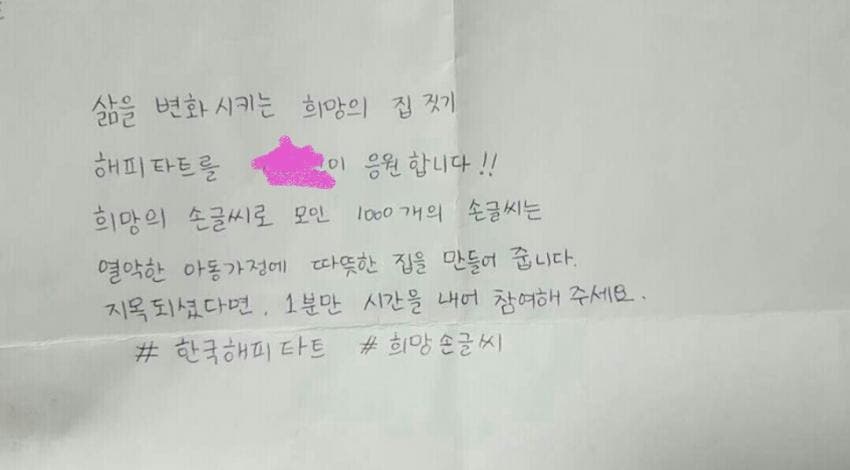 삶을 변화시키는 희망의 집짓기
해피타트를 이 응원합니다!!
희망의 손글씨로 모인 1000개의 손글씨는
열악한 아동가정에 따뜻한 집을 만들어 줍니다.
지목되셨다면, 1분만 시간을 내어 참여해 주세요.
# 한국해피타트 # 희망손글씨